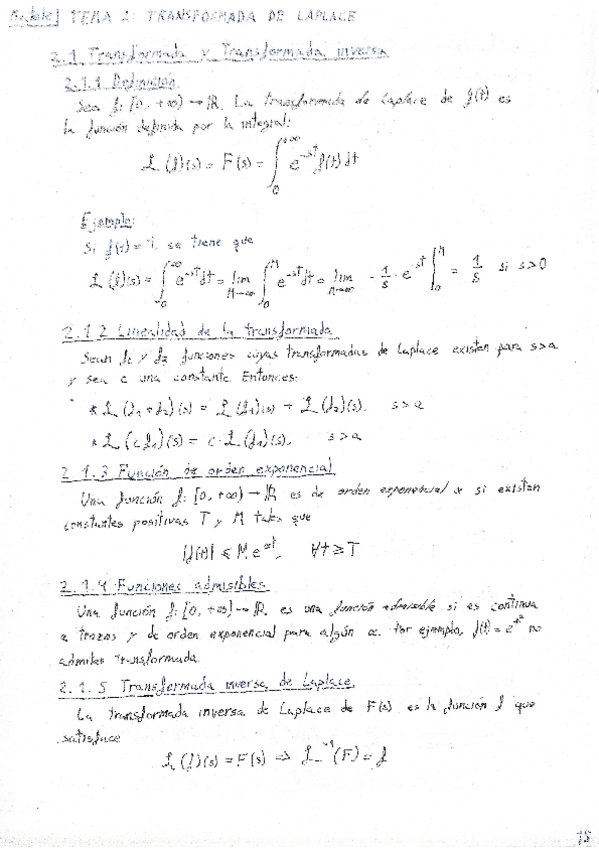 TEMA 2: TRANSFORMADA DE LAPLACE
2.1 Transformada y Transformada inversa
2.1.1 Definición
Sea f: [0, +∞) → ℝ. La transformada de Laplace de f(t) es
la función definida por la integral:
ℒ(f)(s) = F(s) = ∫₀^{+∞} e^{-st} f(t) dt
Ejemplo:
Si f(t) = 1, se tiene que
ℒ(f)(s) = ∫₀^{+∞} e^{-st} dt = lim_{M→∞} ∫₀^M e^{-st} dt = lim_{M→∞} -1/s · e^{-st} |₀^M = 1/s si s>0
2.1.2 Linealidad de la transformada
Sean f₁ y f₂ funciones cuyas transformadas de Laplace existen para s>a
y sea c una constante. Entonces:
* ℒ(f₁+f₂)(s) = ℒ(f₁)(s) + ℒ(f₂)(s), s>a
* ℒ(cf₁)(s) = c·ℒ(f₁)(s), s>a
2.1.3 Función de orden exponencial
Una función f: [0, +∞) → ℝ es de orden exponencial α si existen
constantes positivas T y M tales que
|f(t)| ≤ Me^{αt}, ∀t ≥ T
2.1.4 Funciones admisibles
Una función f: [0, +∞) → ℝ es una función admisible si es continua
a trozos y de orden exponencial para algún α. Por ejemplo, f(t) = e^{t²} no
admite transformada.
2.1.5 Transformada inversa de Laplace
La transformada inversa de Laplace de F(s) es la función f que
satisface
ℒ(f)(s) = F(s) ⇒ ℒ^{-1}(F) = f